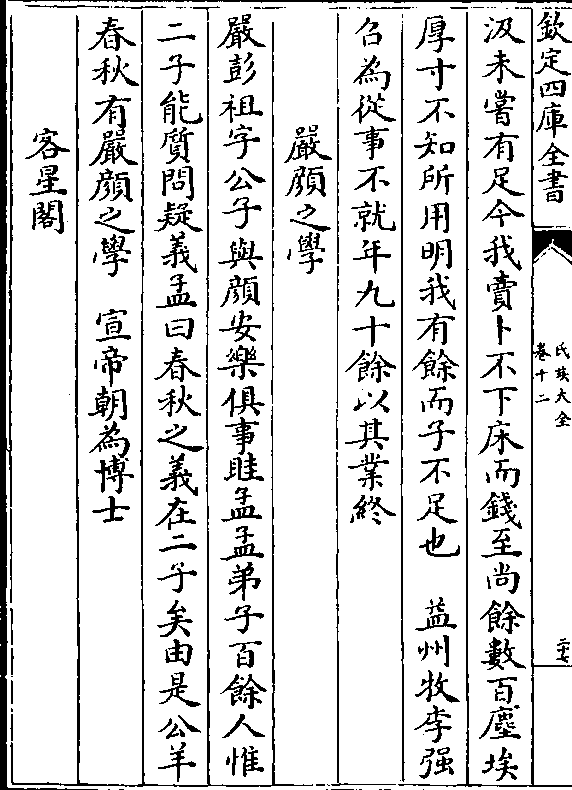 欽定四庫全書
氏族大全
卷十二
二十七
汲未嘗有足今我賣卜不下床而錢至尚餘數百塵埃
厚寸不知所用明我有餘而子不足也　益州牧李强
召為從事不就年九十餘以其業終
嚴顔之學
嚴彭祖字公子與顔安樂俱事眭孟孟弟子百餘人惟
二子能質問疑義孟曰春秋之義在二子矣由是公羊
春秋有嚴顔之學　宣帝朝為博士
客星閣